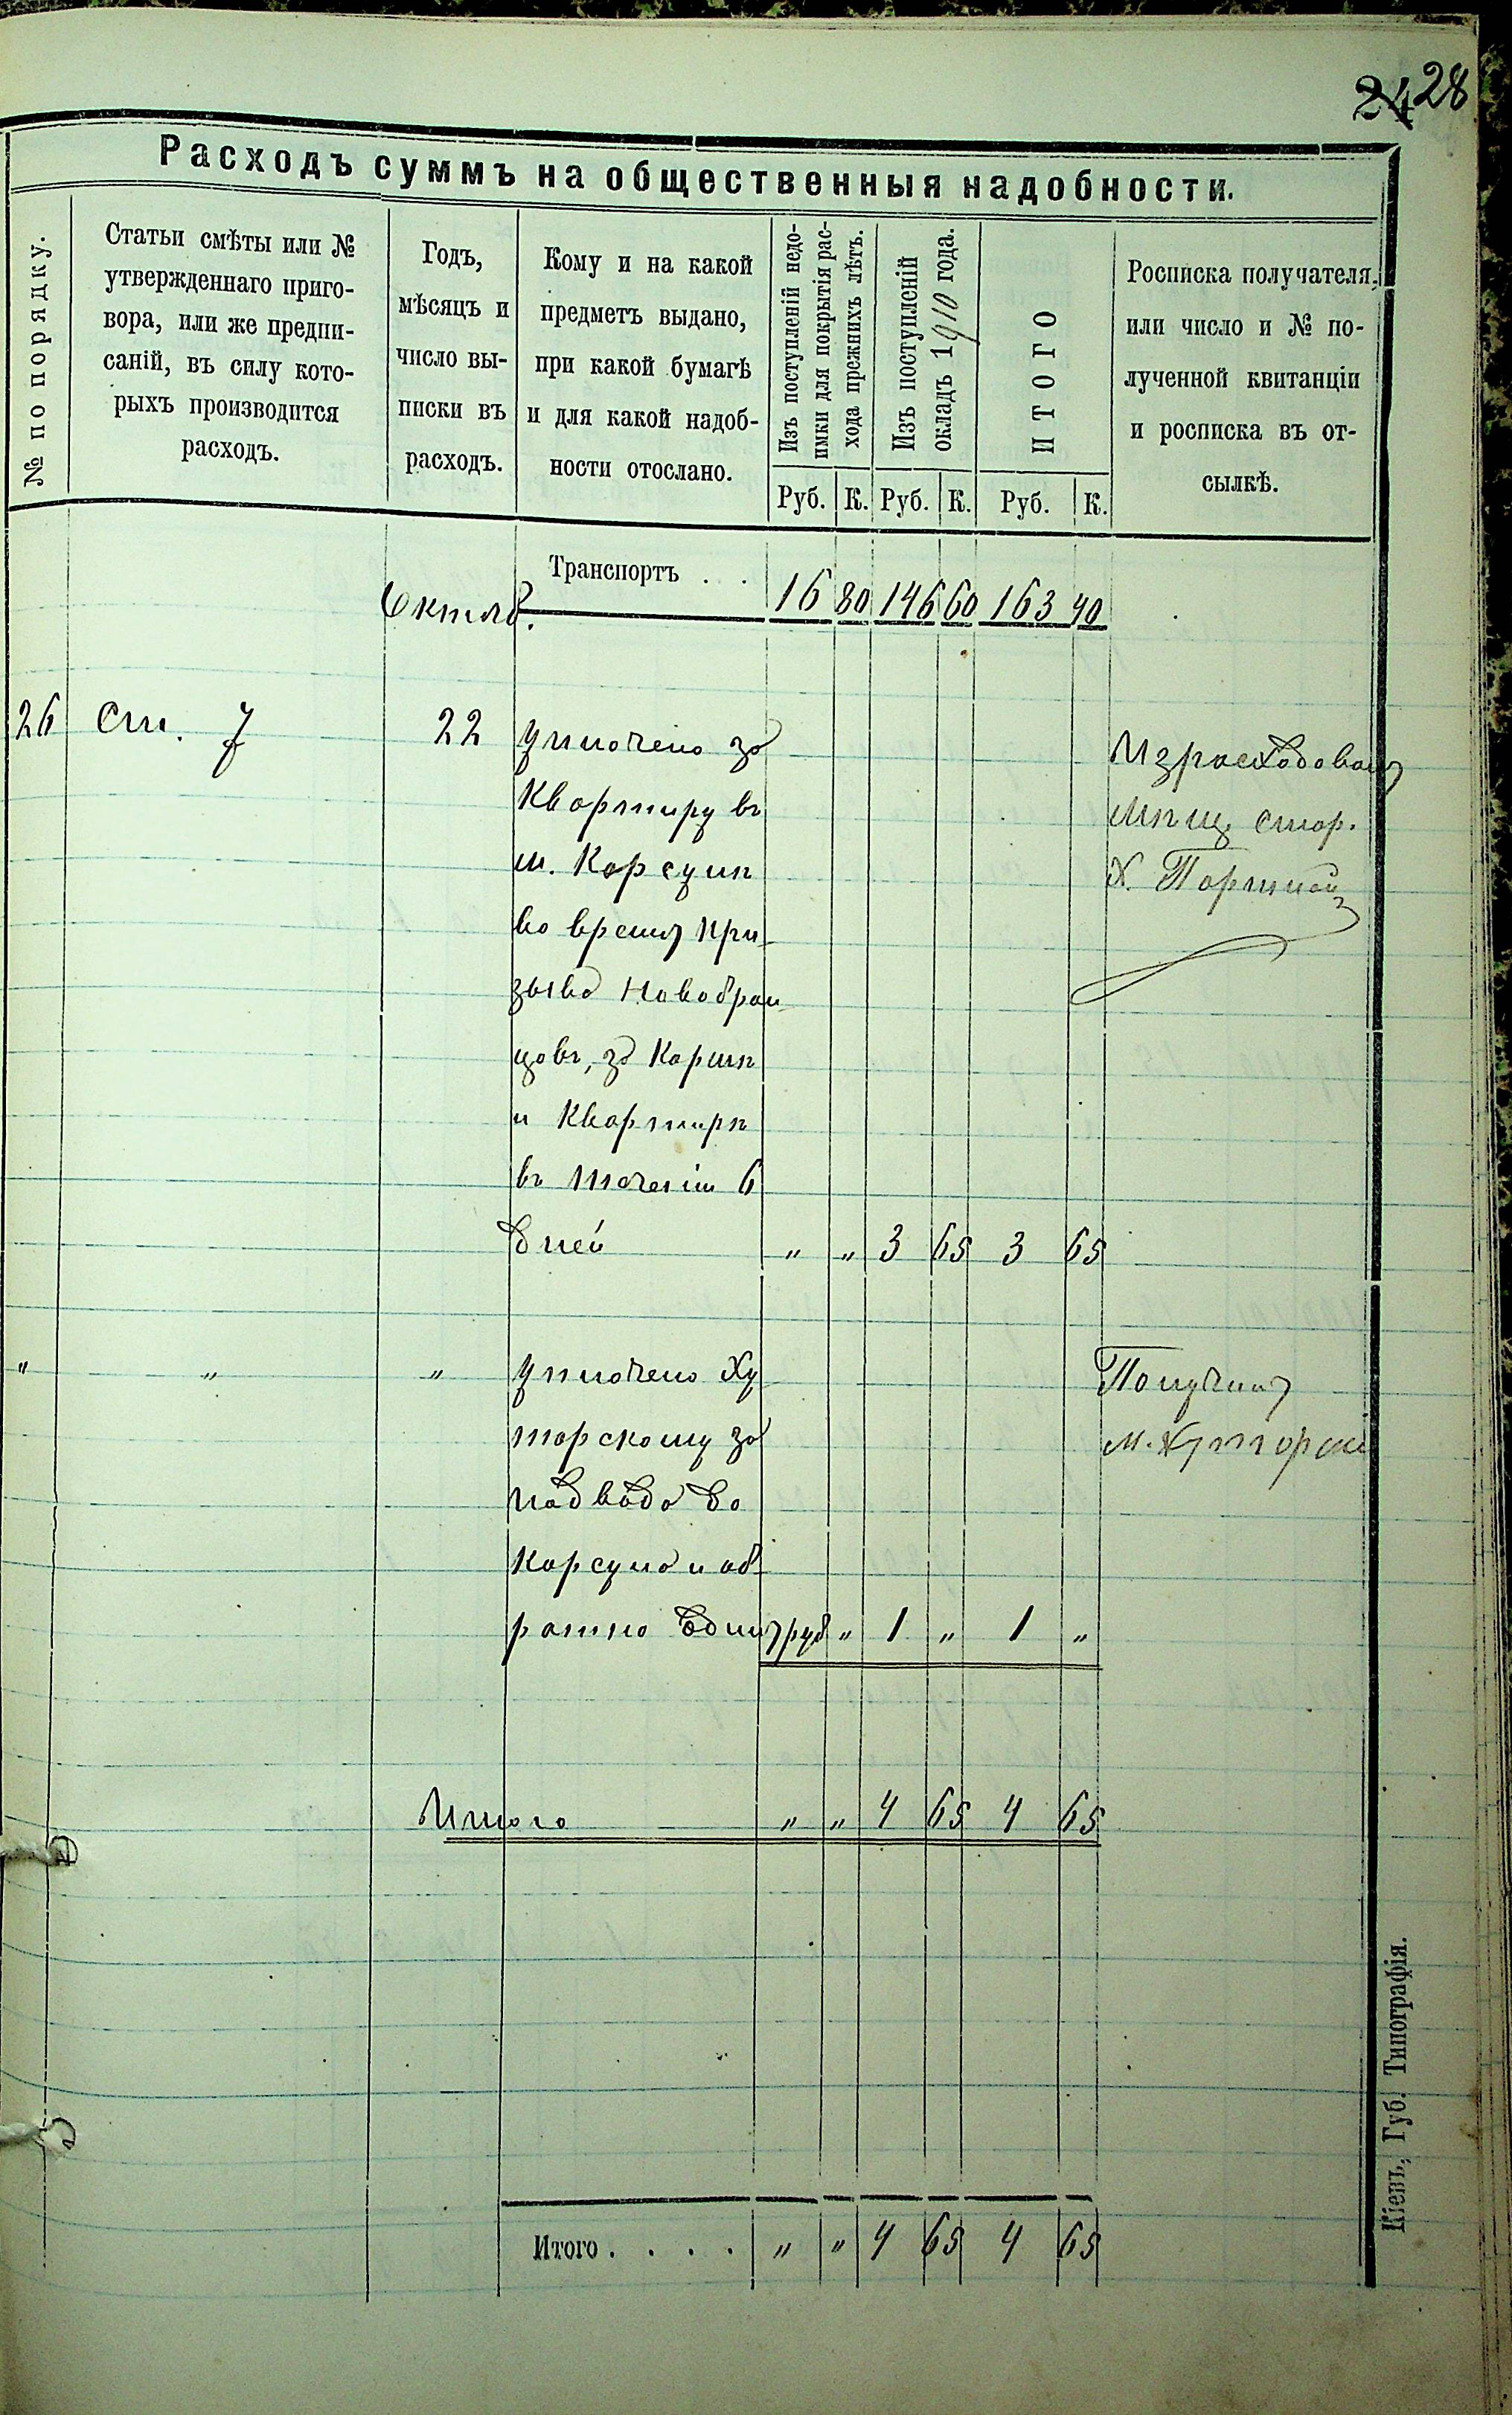 24 28
Расходъ суммъ на общественныя надобности.
№ по порядку.
Статьи смѣты или №
утвержденнаго приго-
вора, или же предпи-
саній, въ силу кото-
рыхъ производится
расходъ.
Годъ,
мѣсяцъ и
число вы-
писки въ
расходъ.
Кому и на какой
предметъ выдано,
при какой бумагѣ
и для какой надоб-
ности отослано.
Изъ поступленій недо-
имки для покрытія рас-
хода прежнихъ лѣтъ.
Изъ поступленій
окладъ 1910 года.
ИТОГО
Росписка получателя,
или число и № по-
лученной квитанціи
и росписка въ от-
сылкѣ.
Руб. К. Руб. К. Руб. К.
Транспортъ . . 16 80 146 60 163 40
Октяб.
26 ст. 7 22 уплочено за
квартиру въ
м. Корсунѣ
во время при-
зыва новобран
цовъ, за
и квартирѣ
въ теченіи 6
дней " " 3 65 3 65
Израсходовалъ
Мѣщ. стар.
Х. Портной
" " " уплочено Ху
торскому за
подводо до
Корсуна и об-
ратно одинъ руб " 1 " 1 "
Получилъ
М. Хуторскі
Итого " " 4 65 4 65
Итого . . . . " " 4 65 4 65
Кіевъ, Губ. Типографія.